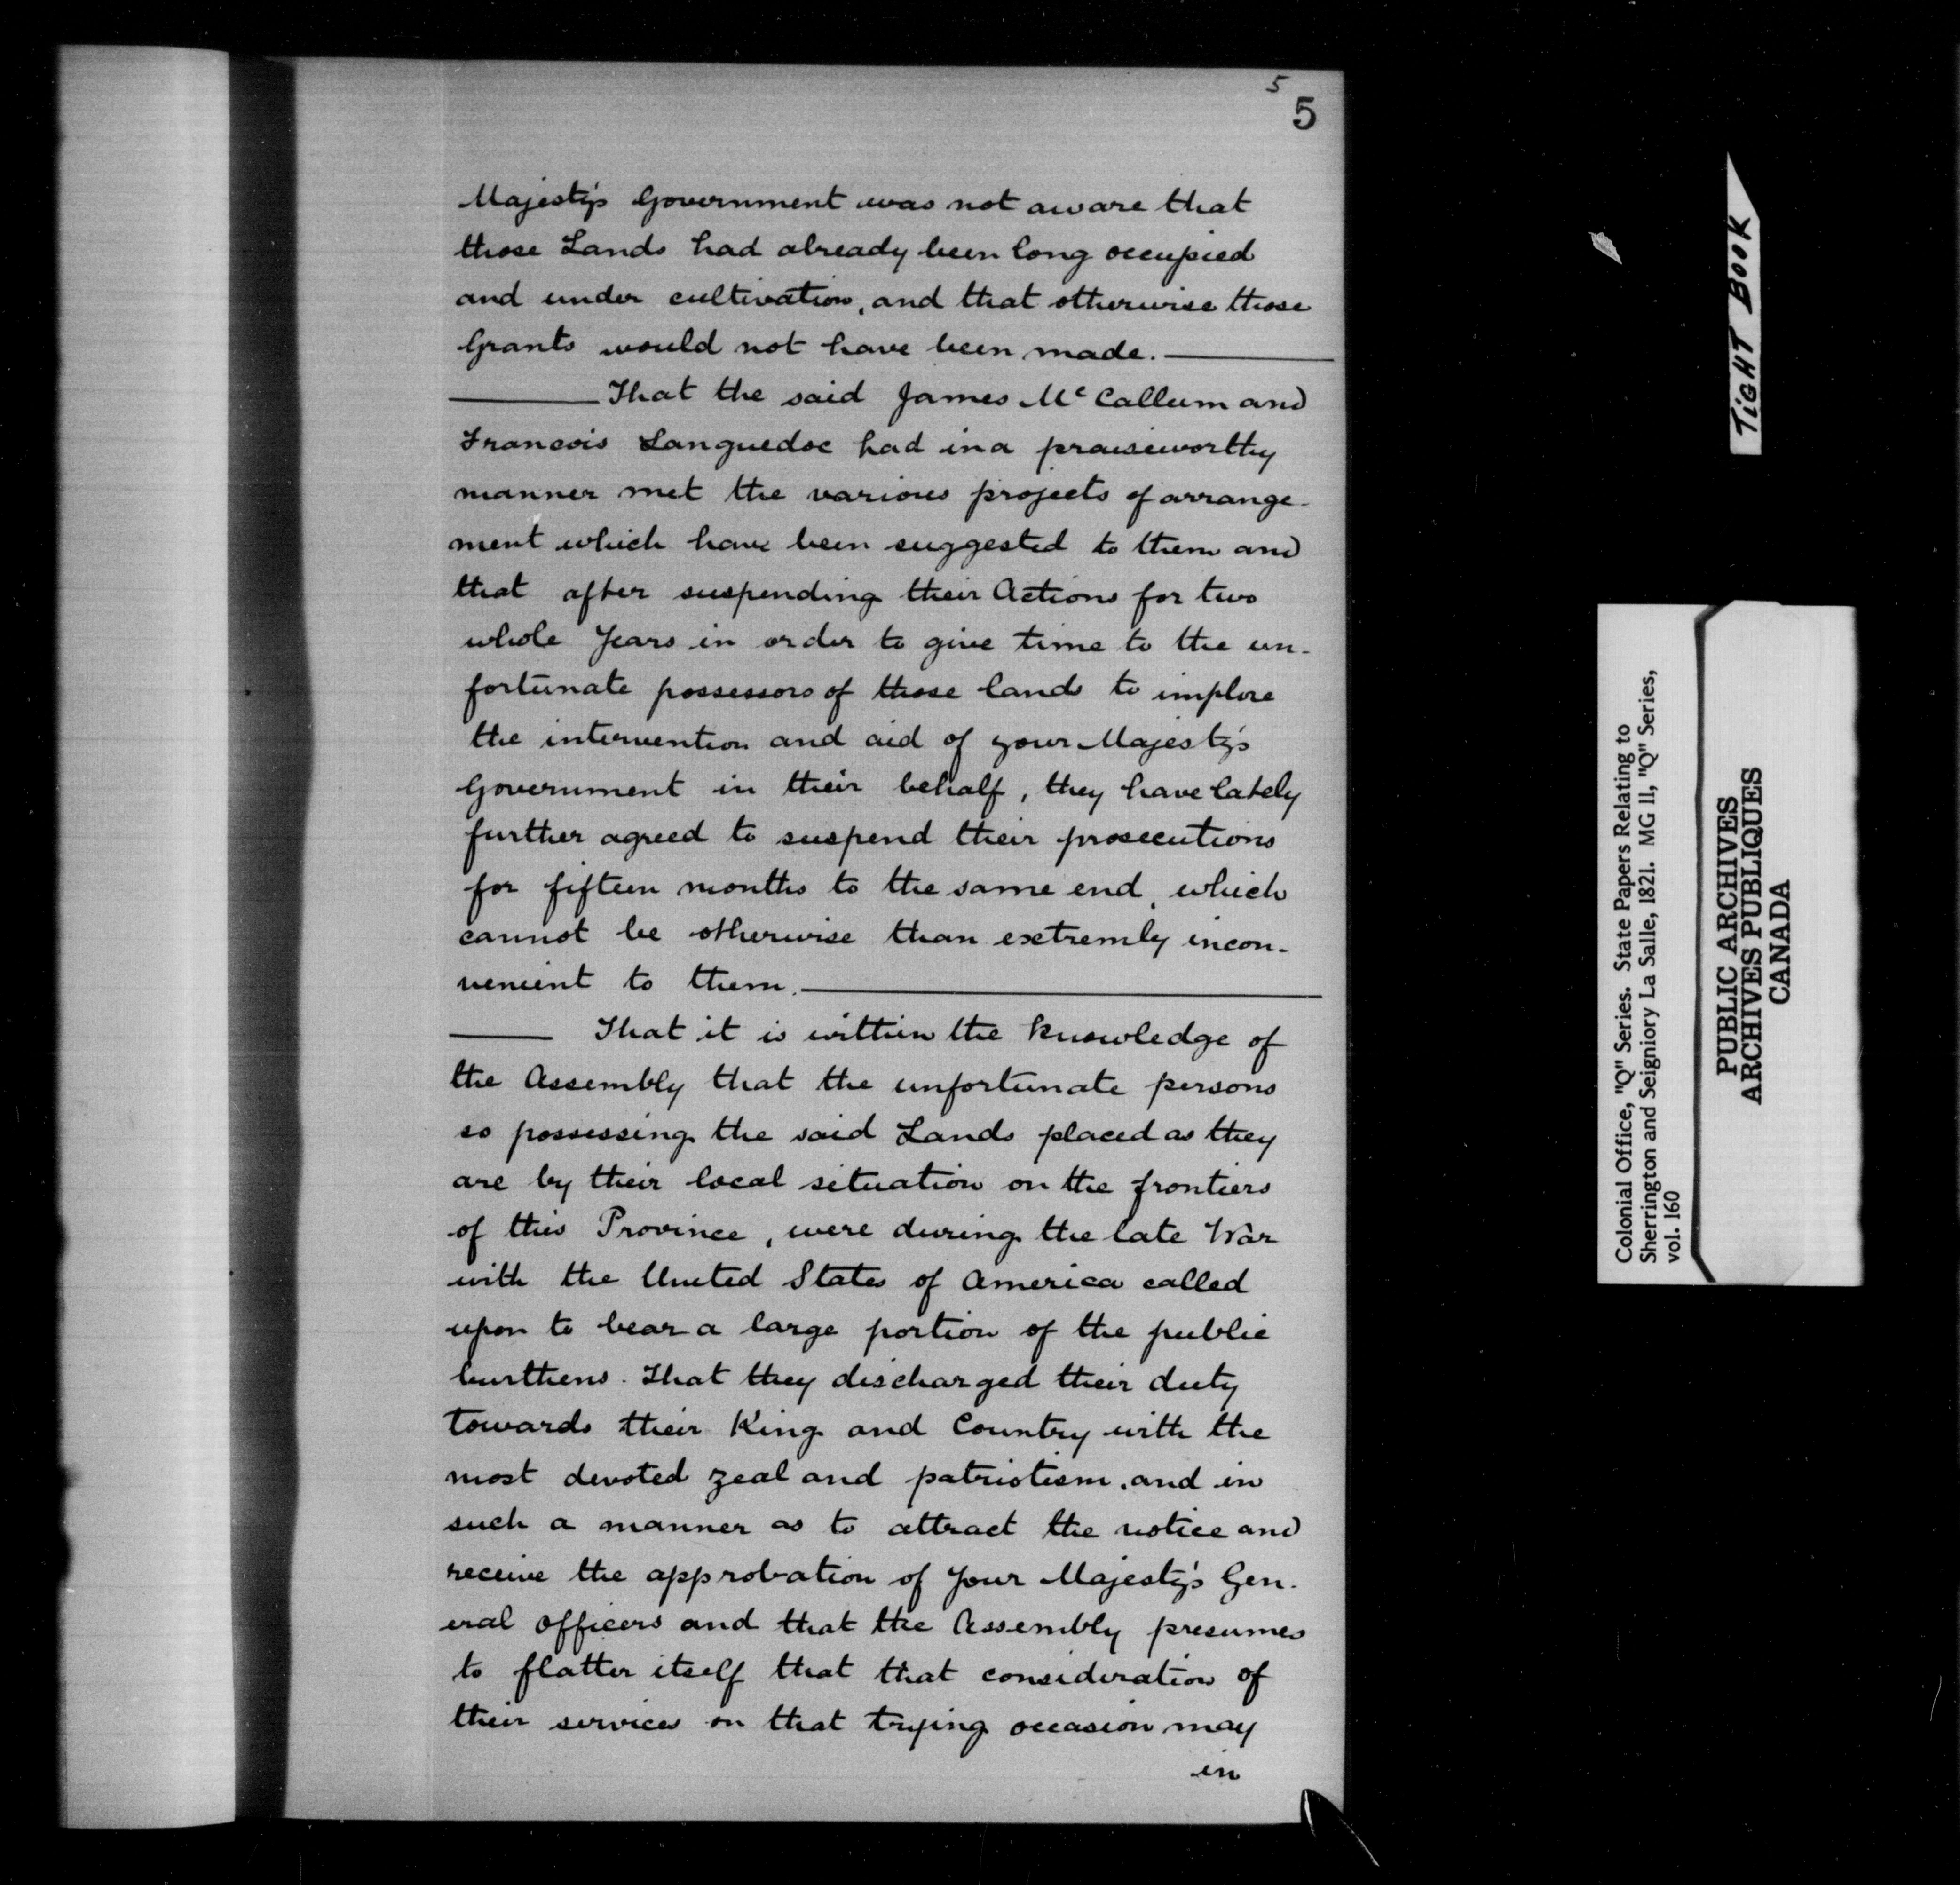 5
5
Majesty's Government was not aware that
those Lands had already been long occupied
and under cultivation, and that otherwise those
Grants would not have been made.
That the said James Mc Callum and
Francois Languedoc had in a praiseworthy
manner met the various projects of arrange-
ment which have been suggested to them and
that after suspending their Actions for two
whole Years in order to give time to the un-
fortunate possessors of those lands to implore
the intervention and aid of your Majesty's
Government in their behalf, they have lately
further agreed to suspend their prosecutions
for fifteen months to the same end, which
cannot be otherwise than extremly incon-
venient to them.
That it is within the knowledge of
the Assembly that the unfortunate persons
so possessing the said Lands placed as they
are by their local situation on the frontiers
of this Province, were during the late War
with the United States of America called
upon to bear a large portion of the public
burthens. That they discharged their duty
towards their King and Country with the
most devoted zeal and patriotism, and in
such a manner as to attract the notice and
receive the approbation of Your Majesty's Gen-
eral Officers and that the Assembly presumes
to flatter itself that that consideration of
their services on that trying occasion may
in
TIGHT BOOK
Colonial Office, "Q" Series. State Papers Relating to
Sherrington and Seigniory La Salle, 1821. MG 11, "Q" Series,
vol. 160
PUBLIC ARCHIVES
ARCHIVES PUBLIQUES
CANADA